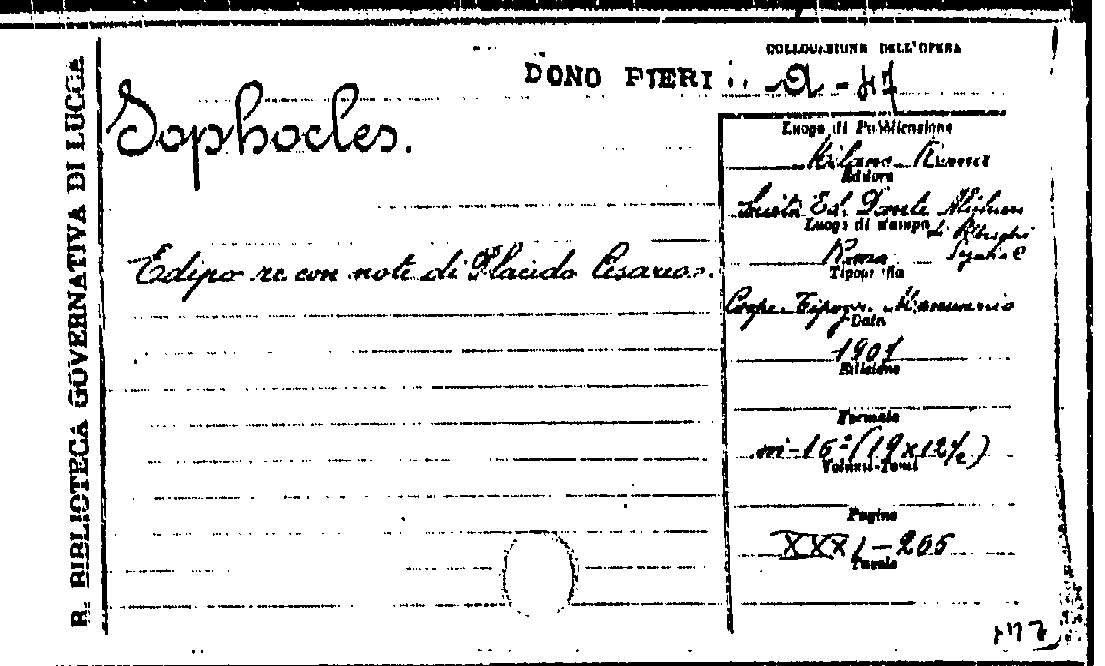 R. BIBLIOTECA GOVERNATIVA DI LUCCA
DONO PIERI
COLLOCAZIONE DELL'OPERA
Sophocles.
Edipo re con note di Placido Cesareo.
Luogo di Pubblicazione
Milano Roma
Editore
Società Ed. Dante Alighieri
Luogo di stampa
di Albrighi
Roma
Segati e C
Tipografia
Coope. Tipogr. Manuzio
Data
1901
Edizione
Formato
in-16º (19x12½)
Volumi-Tomi
Pagine
XXXI-205
Tavole